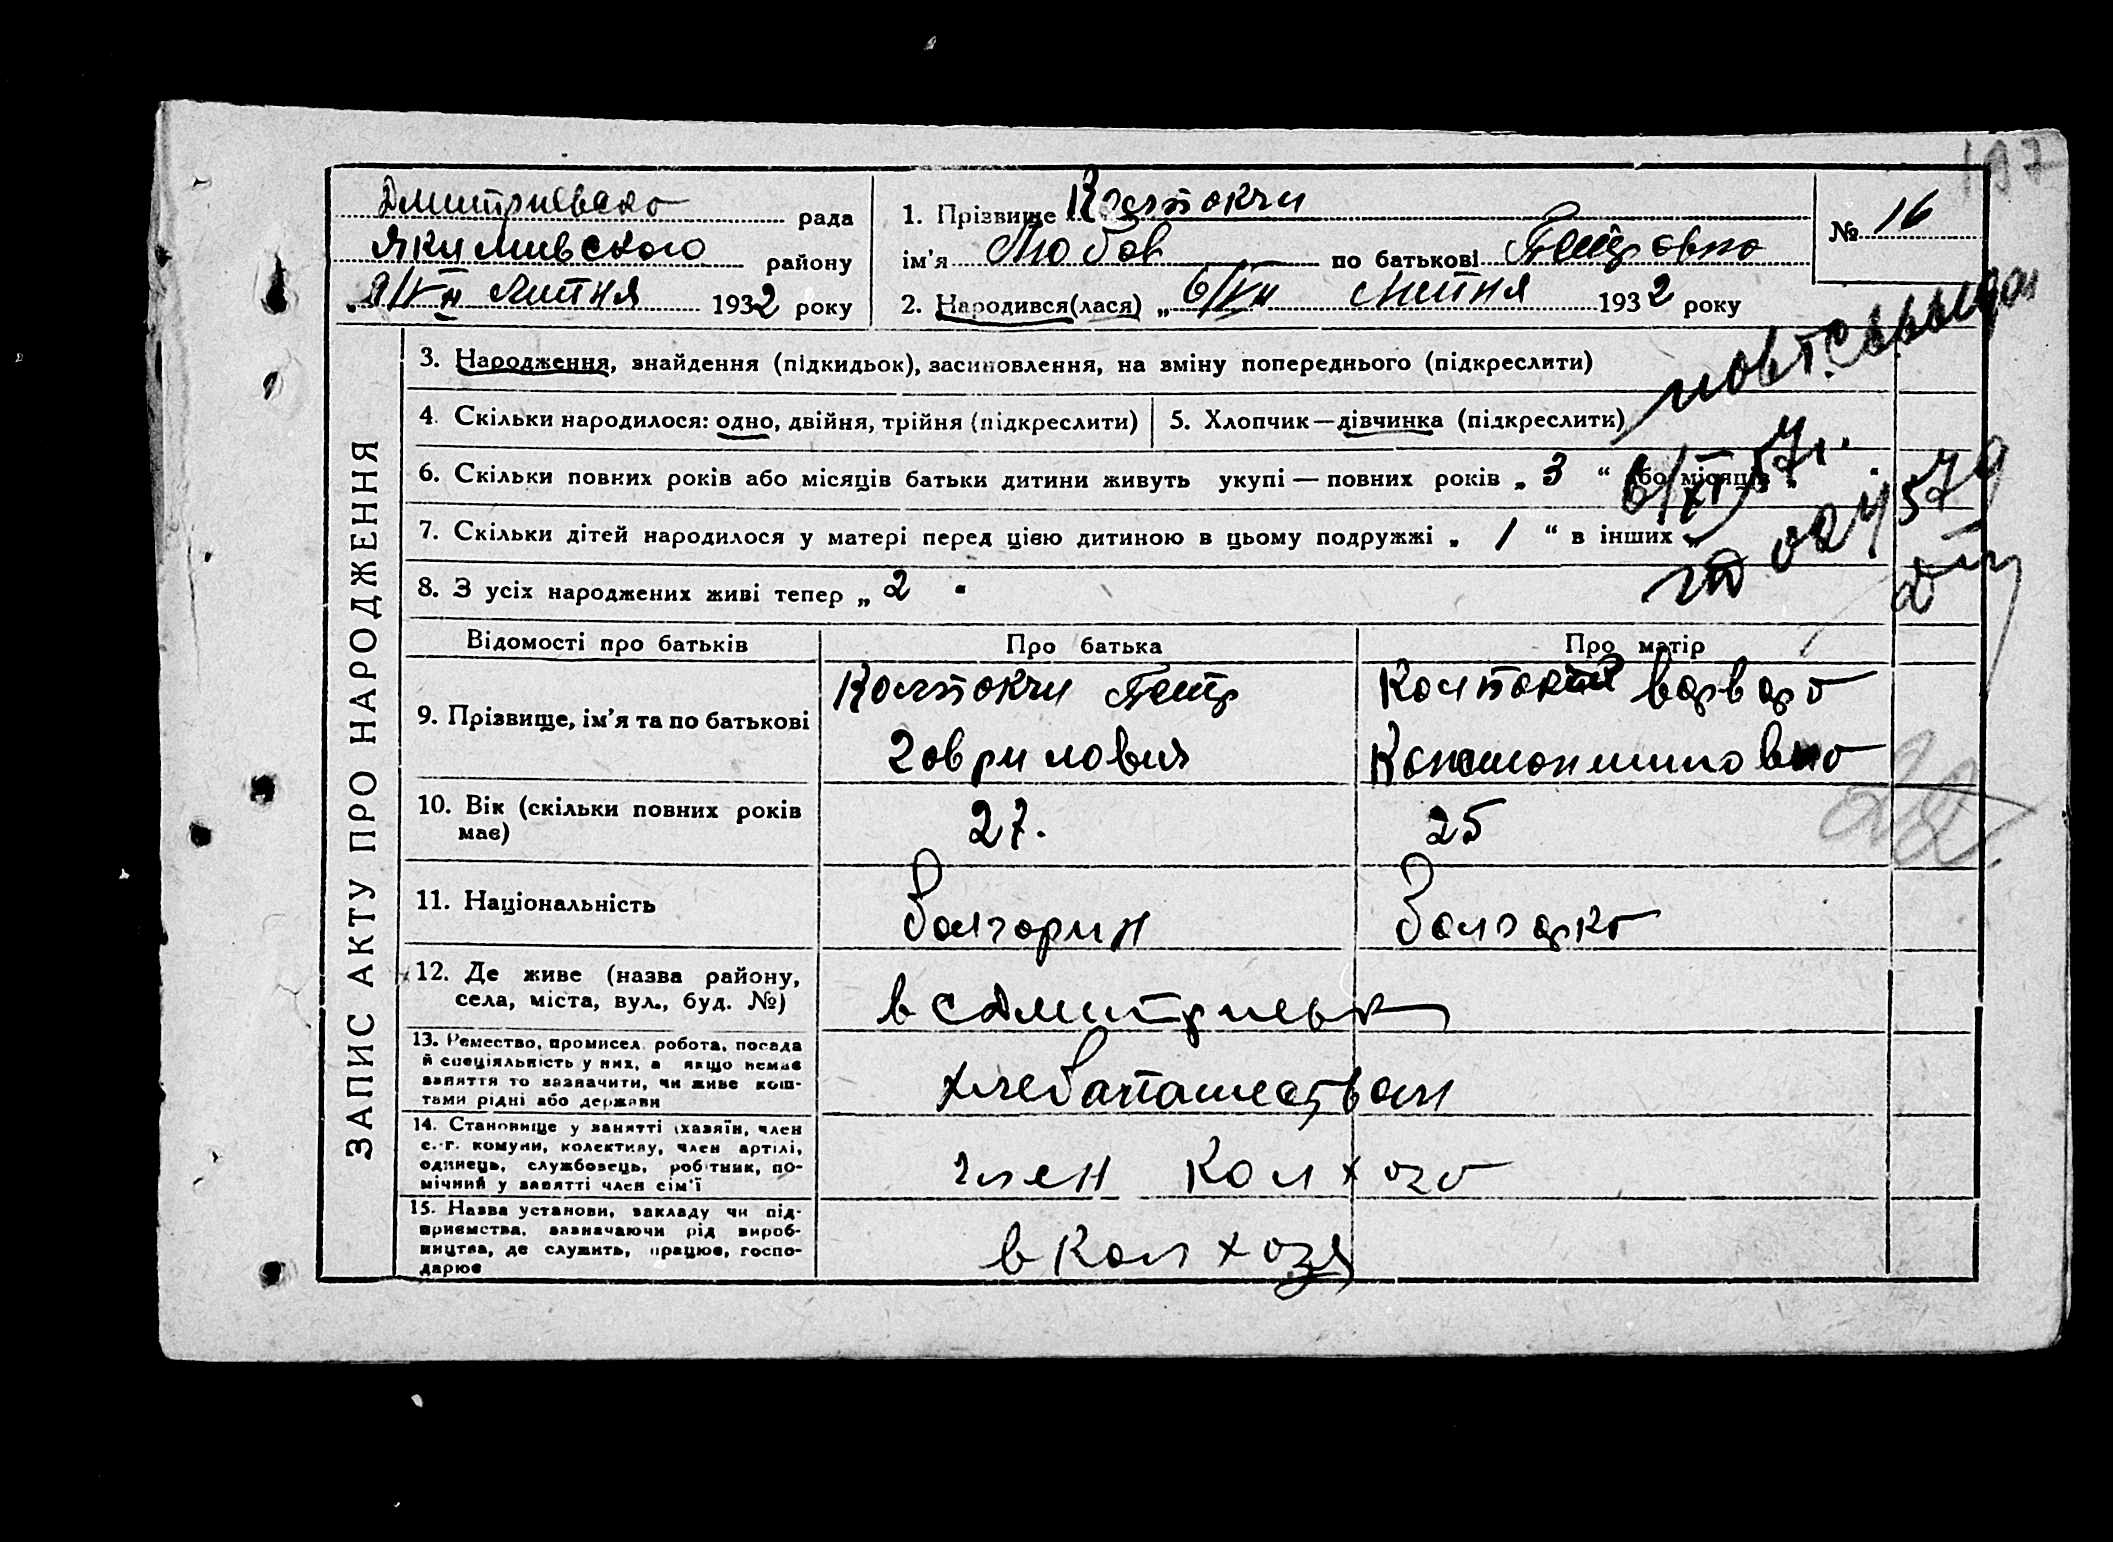 Дмитриевско рада
Якимивського району
„9/VII Липня 1932 року
1. Прізвище Колпокчи
ім'я Любов по батькові Петровно
2. Народився(лася) „6/VII Липня 1932 року
№ 16
197
ЗАПИС АКТУ ПРО НАРОДЖЕННЯ
3. Народження, знайдення (підкидьок), засиновлення, на зміну попереднього (підкреслити)
4. Скільки народилося: одно, двійня, трійня (підкреслити)
5. Хлопчик—дівчинка (підкреслити)
6. Скільки повних років або місяців батьки дитини живуть укупі — повних років „ 3 “ або місяців „
7. Скільки дітей народилося у матері перед цією дитиною в цьому подружжі „ 1 “ в інших „
8. З усіх народжених живі тепер „ 2 "
6/XI 57г.
Відомості про батьків
Про батька
Про матір
9. Прізвище, ім'я та по батькові
Колпокчи Петр
Гаврилович
Колпокчи Варваро
Констонтиновно
10. Вік (скільки повних років
має)
27.
25
11. Національність
болгорин
болгарко
12. Де живе (назва району,
села, міста, вул., буд. №)
в с Дмитриевк
13. Ремество, промисел, робота, посада
й спеціяльність у них, а якщо немає
заняття то зазначити, чи живе кош-
тами рідні або держави
14. Становище у занятті (хазяїн, член
с.-г. комуни, колективу, член артілі,
одинець, службовець, робітник, по-
мічний у занятті член сім'ї
член колхозо
15. Назва установи, закладу чи під-
приємства, зазначаючи рід вироб-
ництва, де служить, працює, госпо-
дарює
в колхозя